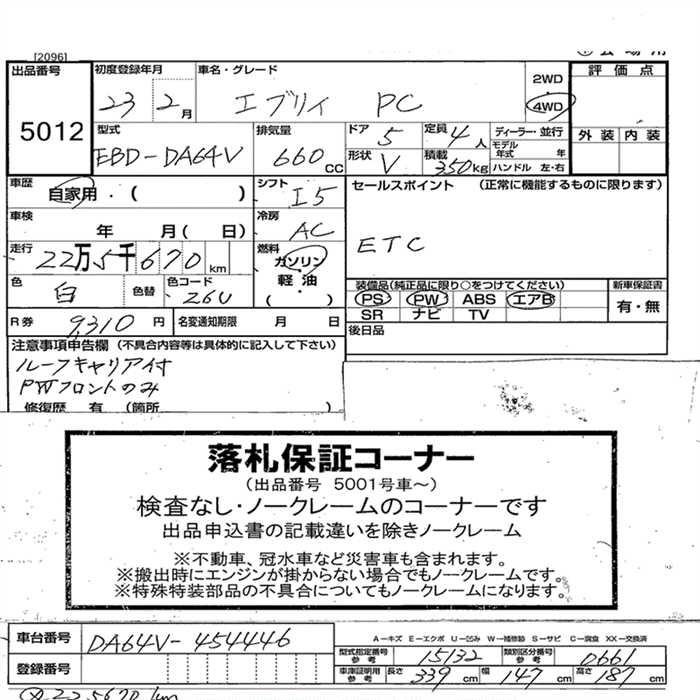 [2096]
出品番号
5012
初度登録年月
23 2月
車名・グレード
エブリイ PC
2WD
4WD
評価点
外装 内装
型式
EBD-DA64V
排気量
660cc
ドア
5
定員
4人
ディーラー・並行
形状
V
積載
350kg
モデル年式 年
ハンドル 左・右
車歴
自家用・( )
シフト
I5
セールスポイント (正常に機能するものに限ります)
ETC
車検
年 月(日)
冷房
AC
走行
22万5千670km
燃料
ガソリン
軽油
( )
色
白
色替
色コード
26U
装備品(純正品に限り○をつけてください)
PS PW ABS エアB
SR ナビ TV
新車保証書
有・無
R券
9,310円
名変通知期限 月 日
後日品
注意事項申告欄(不具合内容等は具体的に記入して下さい)
ルーフキャリア付
PWフロントのみ
修復歴 有 (箇所 )
落札保証コーナー
(出品番号 5001号車~)
検査なし・ノークレームのコーナーです
出品申込書の記載違いを除きノークレーム
※不動車、冠水車など災害車も含まれます。
※搬出時にエンジンが掛からない場合でもノークレームです。
※特殊特装部品の不具合についてもノークレームになります。
車台番号
DA64V-454446
A-キズ E-エクボ U-凹み W-補修跡 S-サビ C-腐食 XX-交換済
登録番号
型式指定番号参考
15132
類別区分番号参考
0661
車庫証明用参考
長さ 339cm 幅 147cm 高さ 187cm